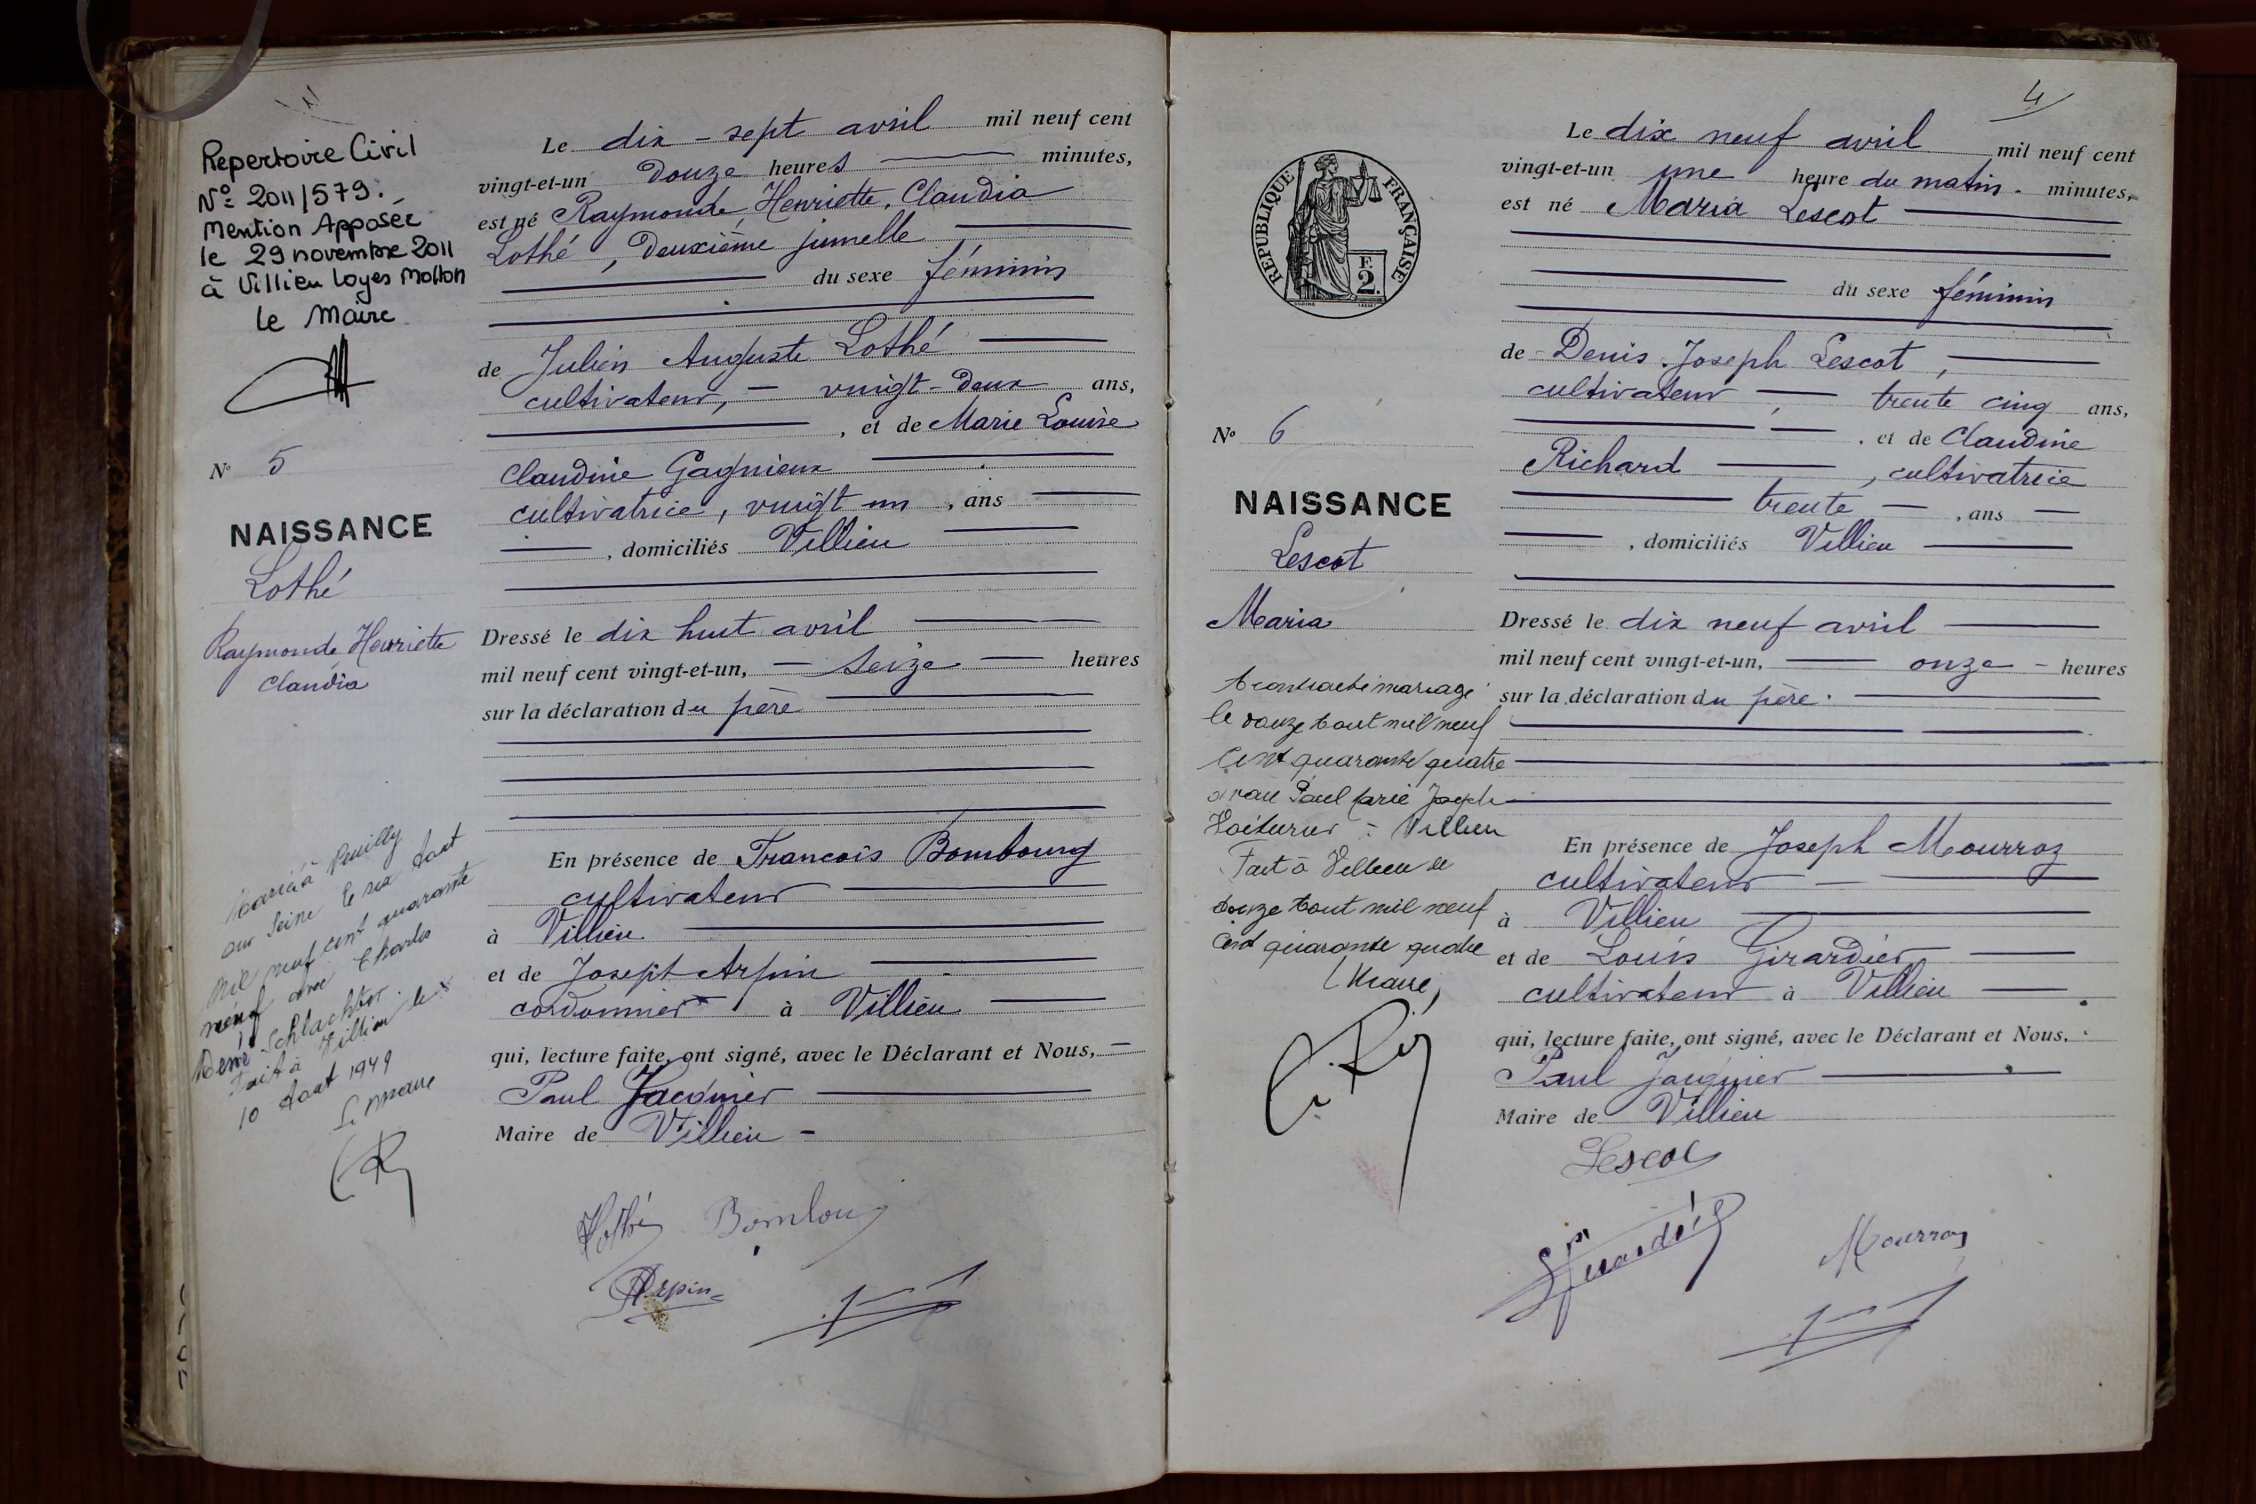 Repertoire Civil
N° 2011/579.
Mention Apposée
le 29 novembre 2011
à Villieu Loyes Mollon
Le Maire
N° 5
NAISSANCE
Lothé
Raymonde Henriette
Claudia
Mariée à Neuilly
sur Seine le six Aout
mil neuf cent quarante
neuf avec Charles
René Schlachter.
Fait à Villieu le
10 Aout 1949
Le Maire
Le dix-sept avril mil neuf cent
vingt-et-un douze heures minutes,
est né Raymonde, Henriette, Claudia
Lothé, deuxième jumelle
du sexe féminin
de Julien Auguste Lothé
cultivateur, vingt-deux ans,
, et de Marie Louise
Claudine Gagnieux
cultivatrice, vingt un, ans
, domiciliés Villieu
Dressé le dix huit avril
mil neuf cent vingt-et-un, seize heures
sur la déclaration du père
En présence de Francois Bombourg
cultivateur
à Villieu
et de Joseph Arpin
cordonnier à Villieu
qui, lecture faite, ont signé, avec le Déclarant et Nous,
Paul Jacquier
Maire de Villieu
Lothé Bombourg
Arpin
4
REPUBLIQUE FRANÇAISE
F.
2.
N° 6
NAISSANCE
Lescot
Maria
A contracté mariage
le douze Aout mil neuf
cent quarante quatre
avec Paul Marie Joseph
Voiturier à Villieu
Fait à Villieu le
douze Aout mil neuf
cent quarante quatre
Le Maire,
Le dix neuf avril mil neuf cent
vingt-et-un une heure du matin. minutes,
est né Maria Lescot
du sexe féminin
de Denis Joseph Lescot,
cultivateur, trente cinq ans,
, et de Claudine
Richard, cultivatrice
trente, ans
, domiciliés Villieu
Dressé le dix neuf avril
mil neuf cent vingt-et-un, onze heures
sur la déclaration du père.
En présence de Joseph Mourroz
cultivateur
à Villieu
et de Louis Girardier
cultivateur à Villieu
qui, lecture faite, ont signé, avec le Déclarant et Nous.
Paul Jacquier
Maire de Villieu
Lescot
Girardier
Mourroz